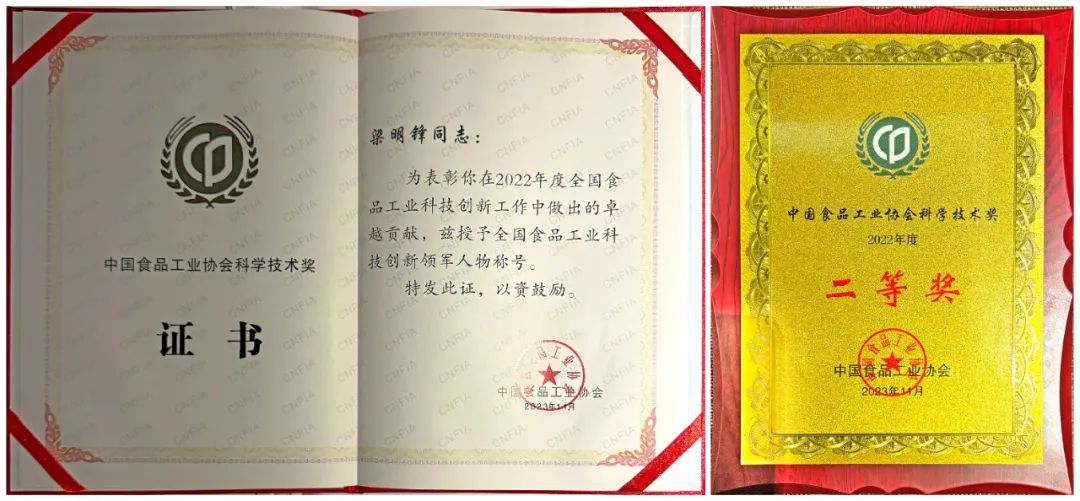 中国食品工业协会科学技术奖
证书
梁明锋同志：
为表彰你在2022年度全国食
品工业科技创新工作中做出的卓
越贡献，兹授予全国食品工业科
技创新领军人物称号。
特发此证，以资鼓励。
中国食品工业协会
2023年11月
CNFIA
中国食品工业协会科学技术奖
2022年度
二等奖
中国食品工业协会
2023年11月